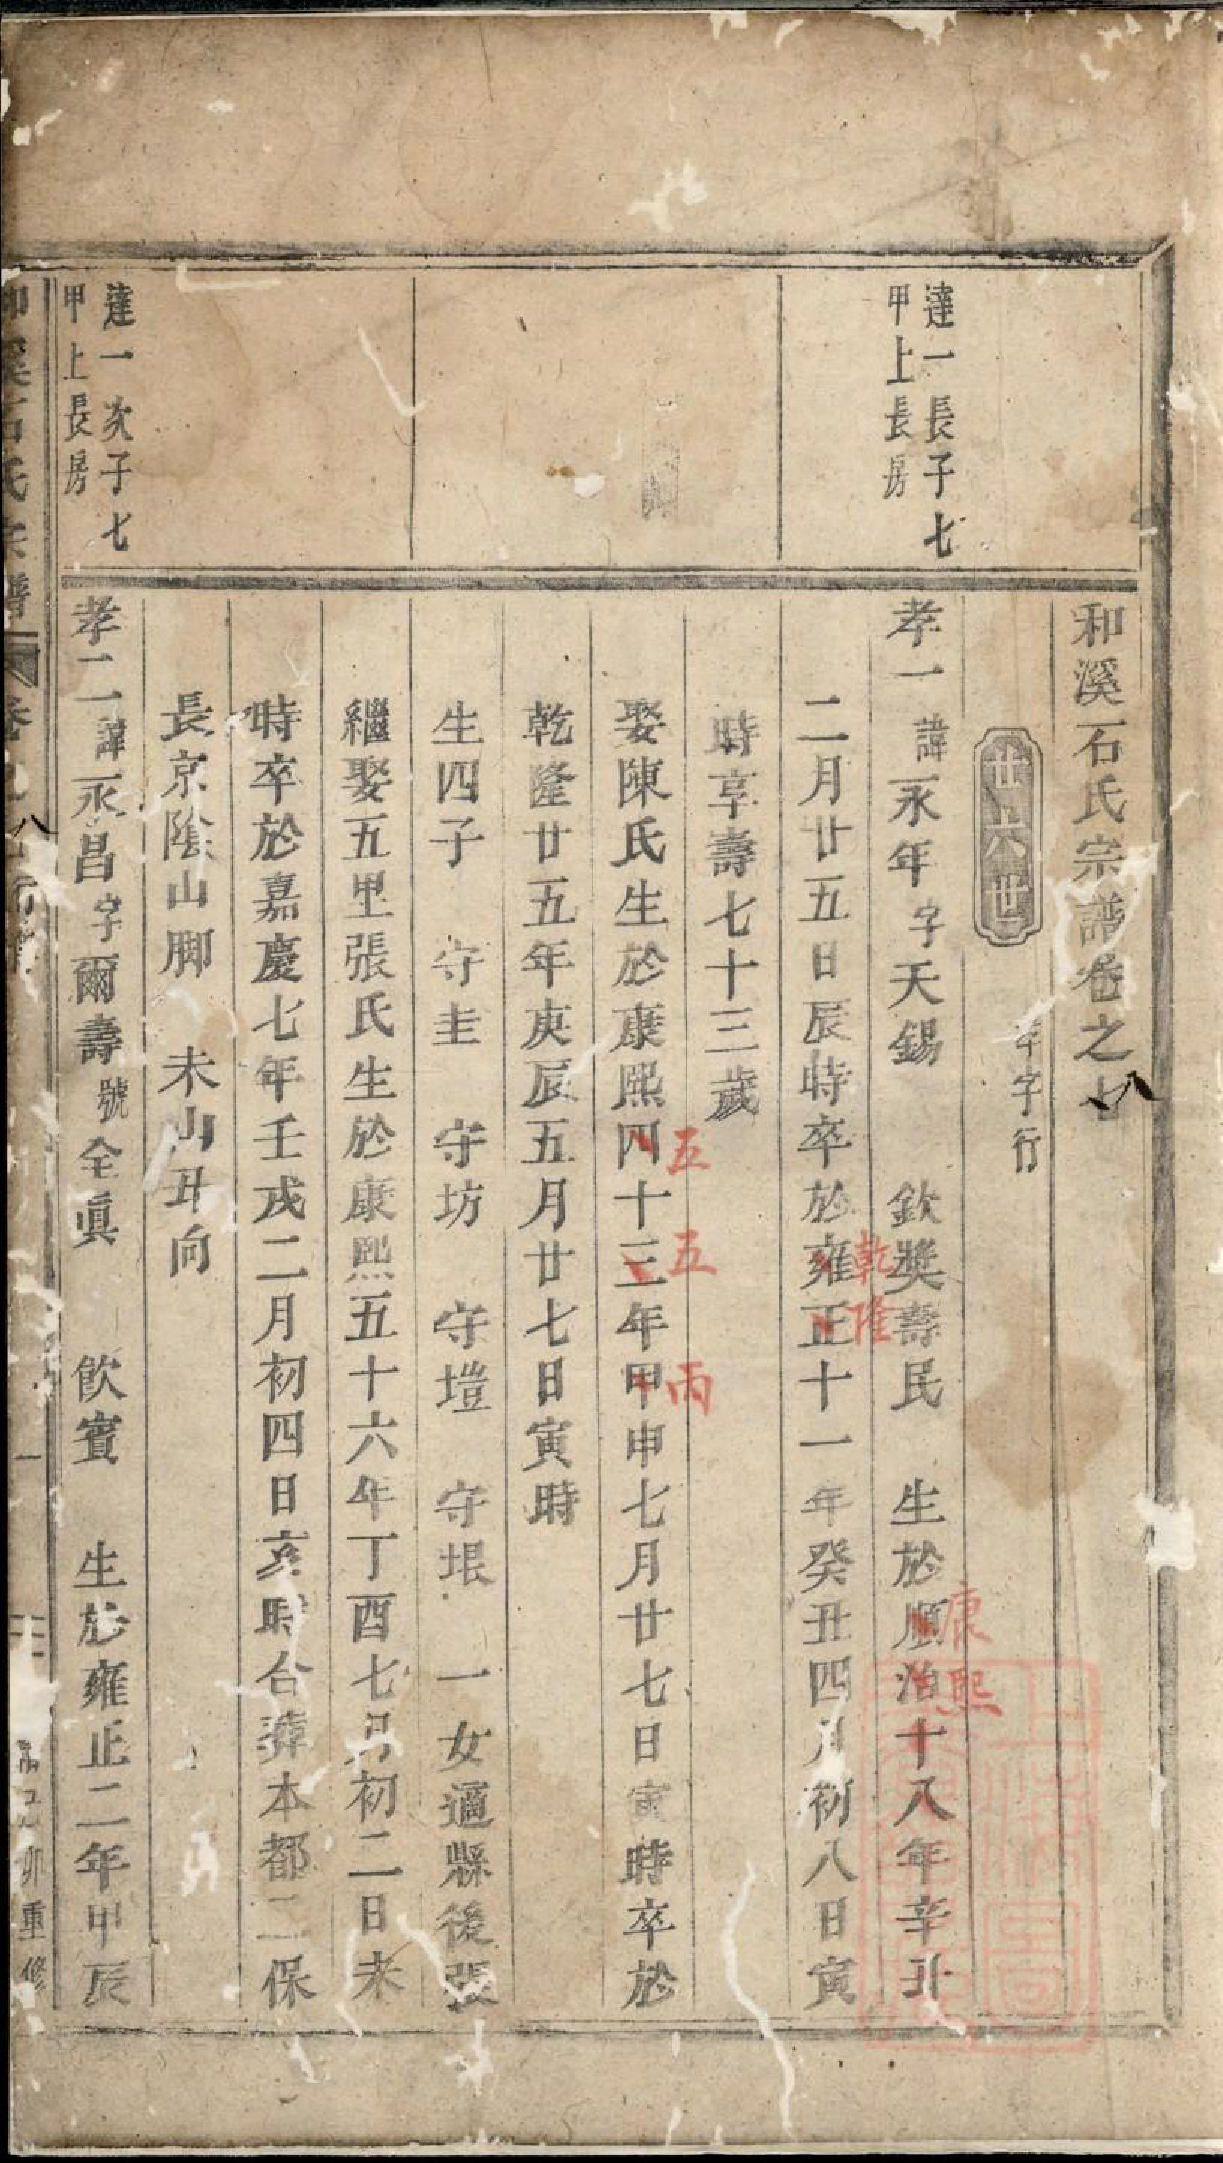 和溪石氏宗譜卷之七
八
廿六世
孝字行
達一長子七
甲上長房
孝一諱永年字天錫 欽奬壽民 生於順治十八年辛丑
康熙
二月廿五日辰時卒於雍正十一年癸丑四月初八日寅
乾隆
時享壽七十三歲
娶陳氏生於康熙四十三年甲申七月廿七日寅時卒於
五 五 丙
乾隆廿五年庚辰五月廿七日寅時
生四子 守圭 守坊 守塏 守垠 一女適縣後張
繼娶五里張氏生於康熙五十六年丁酉七月初二日未
時卒於嘉慶七年壬戌二月初四日亥時合葬本都二保
長京陰山脚 未山丑向
達一次子七
甲上長房
孝二諱永昌字爾壽號全眞 飲賓 生於雍正二年甲辰
和溪石氏宗譜
卷
八
一
己卯重修